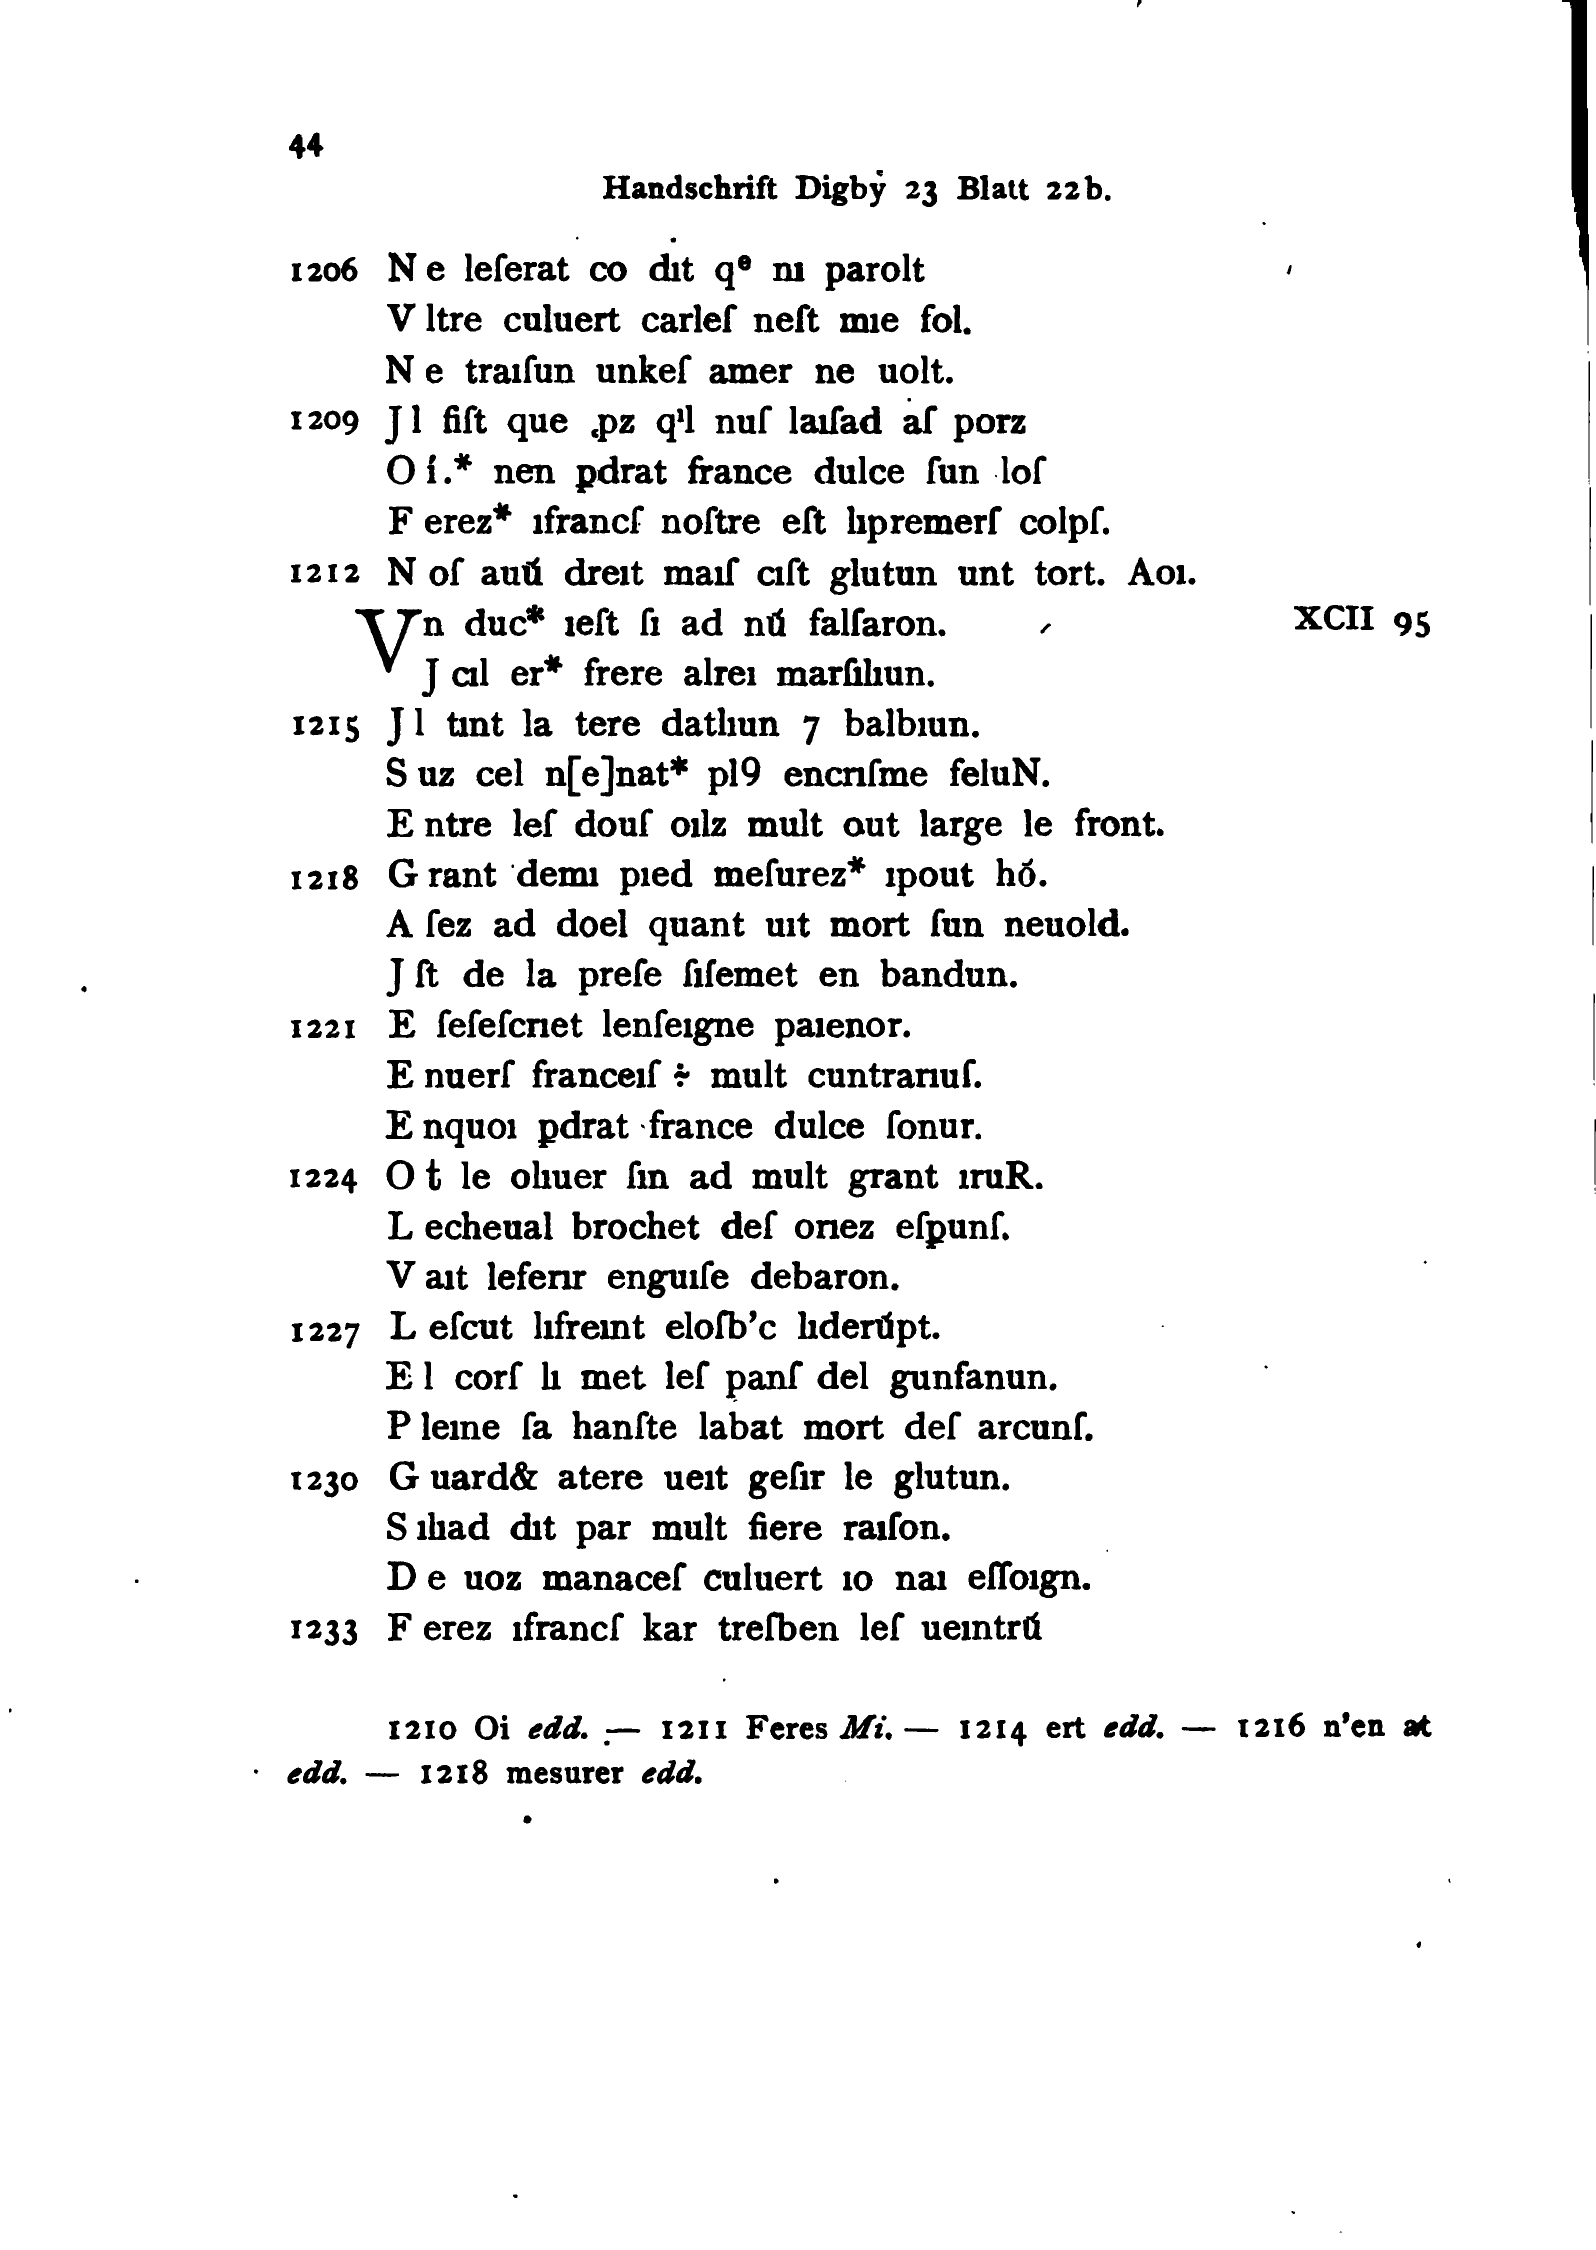 44
Handschrift Digby 23 Blatt 22b.
1206 N e leſerat co dıt qᵉ nı parolt
V ltre culuert carleſ neſt mıe fol.
N e traıſun unkeſ amer ne uolt.
1209 J l fiſt que ꝓz qˡl nuſ laıſad aſ porz
O í.* nen ꝑdrat france dulce ſun loſ
F erez* ıfrancſ noſtre eſt lıpremerſ colpſ.
1212 N oſ auū́ dreıt maıſ cıſt glutun unt tort. Aoı.
Vn duc* ıeſt ſı ad nū́ falſaron. XCII 95
J cıl er* frere alreı marſılıun.
1215 J l tınt la tere datlıun 7 balbıun.
S uz cel n[e]nat* pl9 encrıſme feluN.
E ntre leſ douſ oılz mult out large le front.
1218 G rant demı pıed meſurez* ıpout hṓ.
A ſez ad doel quant uıt mort ſun neuold.
J ſt de la preſe ſıſemet en bandun.
1221 E ſeſeſcrıet lenſeıgne paıenor.
E nuerſ franceıſ ÷ mult cuntrarıuſ.
E nquoı ꝑdrat france dulce ſonur.
1224 O t le olıuer ſın ad mult grant ıruR.
L echeual brochet deſ orıez eſꝑunſ.
V aıt leferır enguıſe debaron.
1227 L eſcut lıfreınt eloſb’c lıderū́pt.
E l corſ lı met leſ panſ del gunfanun.
P leıne ſa hanſte labat mort deſ arcunſ.
1230 G uard& atere ueıt geſır le glutun.
S ılıad dıt par mult fiere raıſon.
D e uoz manaceſ culuert ıo naı eſſoıgn.
1233 F erez ıfrancſ kar treſben leſ ueıntrū́
1210 Oi edd. — 1211 Feres Mi. — 1214 ert edd. — 1216 n'en at
edd. — 1218 mesurer edd.